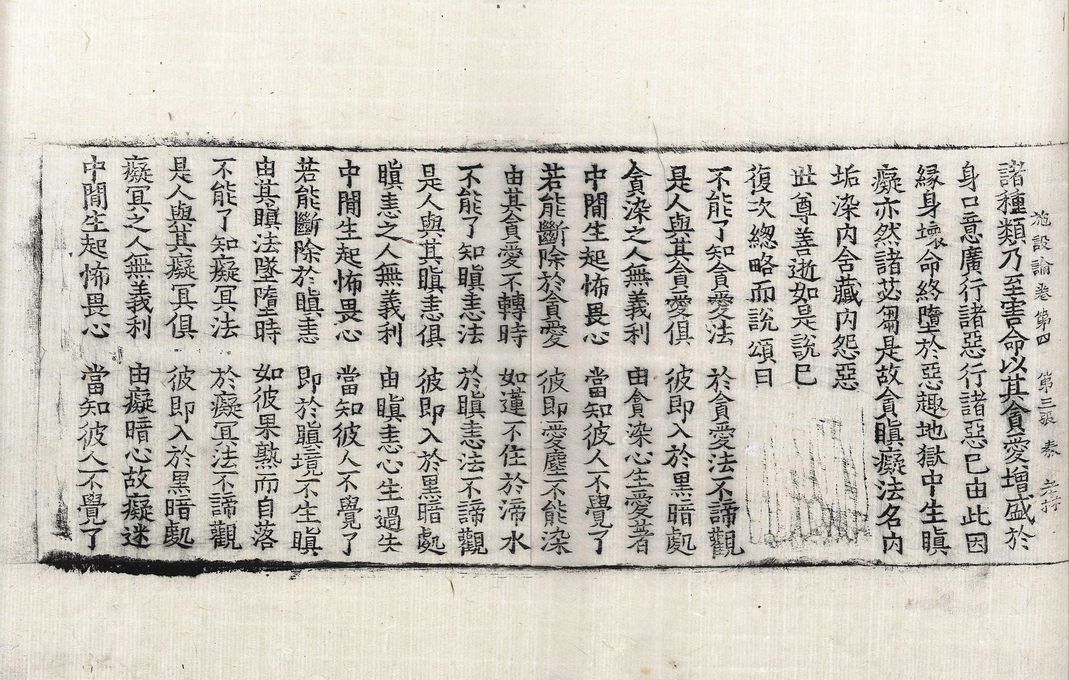 施設論卷第四 第三張 卷
諸種類乃至害命以其貪愛增盛於
身口意廣行諸惡行諸惡已由此因
緣身壞命終墮於惡趣地獄中生瞋
癡亦然諸苾芻是故貪瞋癡法名內
垢染內含藏內怨惡
世尊善逝如是說已
復次總略而說頌曰
不能了知貪愛法 於貪愛法不諦觀
是人與其貪愛俱 彼即入於黑暗處
貪染之人無義利 由貪染心生愛著
中間生起怖畏心 當知彼人不覺了
若能斷除於貪愛 彼即愛塵不能染
由其貪愛不轉時 如蓮不住於渧水
不能了知瞋恚法 於瞋恚法不諦觀
是人與其瞋恚俱 彼即入於黑暗處
瞋恚之人無義利 由瞋恚心生過失
中間生起怖畏心 當知彼人不覺了
若能斷除於瞋恚 即於瞋境不生瞋
由其瞋法墜墮時 如彼果熟而自落
不能了知癡冥法 於癡冥法不諦觀
是人與其癡冥俱 彼即入於黑暗處
癡冥之人無義利 由癡暗心故癡迷
中間生起怖畏心 當知彼人不覺了